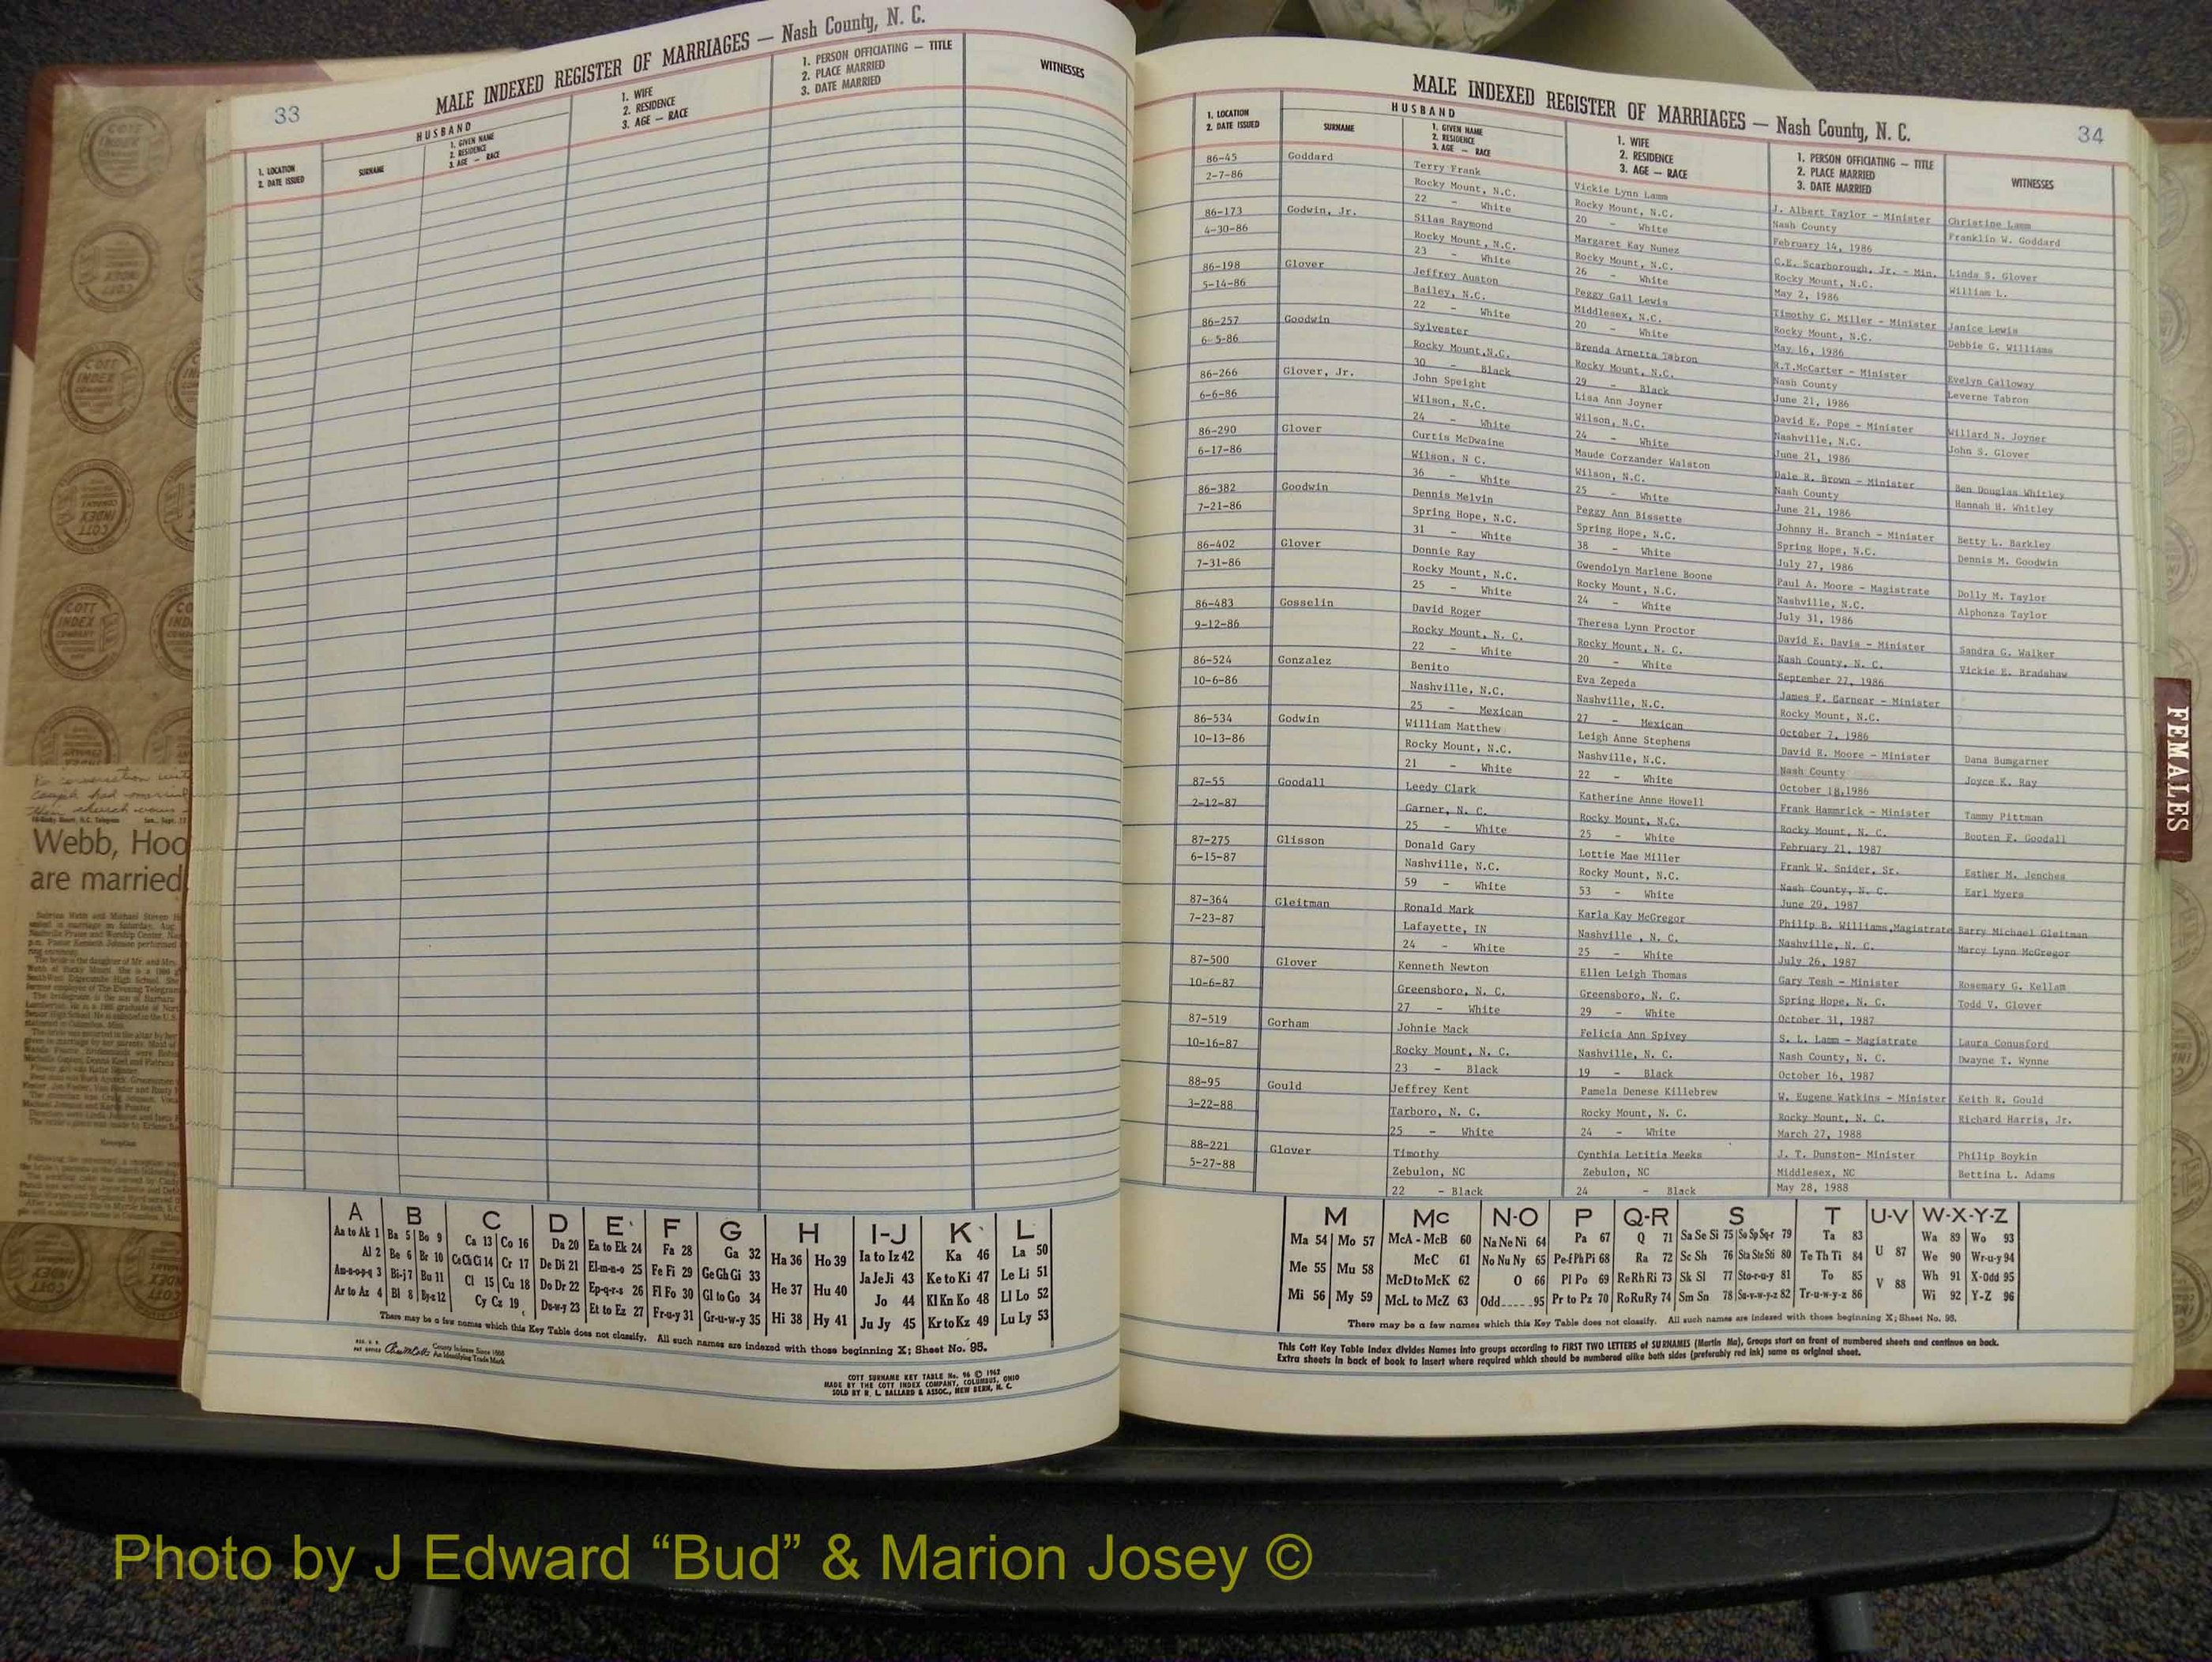 33
MALE INDEXED REGISTER OF MARRIAGES — Nash County, N. C.
1. LOCATION
2. DATE ISSUED
HUSBAND
SURNAME
1. GIVEN NAME
2. RESIDENCE
3. AGE — RACE
1. WIFE
2. RESIDENCE
3. AGE — RACE
1. PERSON OFFICIATING — TITLE
2. PLACE MARRIED
3. DATE MARRIED
WITNESSES
Webb, Hoo
are married
A B C D E F G H I-J K L
Aa to Ak 1 Ba 5 Bo 9 Ca 13 Co 16 Da 20 Ea to Ek 24 Fa 28 Ga 32 Ha 36 Ho 39 Ia to Iz 42 Ka 46 La 50
Al 2 Be 6 Br 10 Ce Ch Ci 14 Cr 17 De Di 21 El-m-n-o 25 Fe Fi 29 Ge Gh Gi 33 He 37 Hu 40 Ja Je Ji 43 Ke to Ki 47 Le Li 51
Am-n-o-p-q 3 Bi-j 7 Bu 11 Cl 15 Cu 18 Do Dr 22 Ep-q-r-s 26 Fl Fo 30 Gl to Go 34 Hi 38 Hy 41 Jo 44 Kl Kn Ko 48 Ll Lo 52
Ar to Az 4 Bl 8 By-z 12 Cy Cz 19 Du-w-y 23 Et to Ez 27 Fr-u-y 31 Gr-u-w-y 35 Ju Jy 45 Kr to Kz 49 Lu Ly 53
There may be a few names which this Key Table does not classify. All such names are indexed with those beginning X; Sheet No. 95.
County Indexes Since 1888
An Identifying Trade Mark
COTT SURNAME KEY TABLE No. 96 © 1962
MADE BY THE COTT INDEX COMPANY, COLUMBUS, OHIO
SOLD BY R. L. BALLARD & ASSOC., NEW BERN, N. C.
MALE INDEXED REGISTER OF MARRIAGES — Nash County, N. C.
34
1. LOCATION
2. DATE ISSUED
HUSBAND
SURNAME
1. GIVEN NAME
2. RESIDENCE
3. AGE — RACE
1. WIFE
2. RESIDENCE
3. AGE — RACE
1. PERSON OFFICIATING — TITLE
2. PLACE MARRIED
3. DATE MARRIED
WITNESSES
86-45 Goddard Terry Frank Vickie Lynn Lamm J. Albert Taylor - Minister Christine Lamm
2-7-86 Rocky Mount, N.C. Rocky Mount, N.C. Nash County Franklin W. Goddard
22 - White 20 - White February 14, 1986
86-173 Godwin, Jr. Silas Raymond Margaret Kay Nunez C.E. Scarborough, Jr. - Min. Linda S. Glover
4-30-86 Rocky Mount, N.C. Rocky Mount, N.C. Rocky Mount, N.C. William L.
23 - White 26 - White May 2, 1986
86-198 Glover Jeffrey Auston Peggy Gail Lewis Timothy C. Miller - Minister Janice Lewis
5-14-86 Bailey, N.C. Middlesex, N.C. Rocky Mount, N.C. Debbie G. Williams
22 - White 20 - White May 16, 1986
86-257 Goodwin Sylvester Brenda Arnetta Tabron R.T.McCarter - Minister Evelyn Calloway
6-5-86 Rocky Mount,N.C. Rocky Mount, N.C. Nash County Leverne Tabron
30 - Black 29 - Black June 21, 1986
86-266 Glover, Jr. John Speight Lisa Ann Joyner David E. Pope - Minister Willard N. Joyner
6-6-86 Wilson, N.C. Wilson, N.C. Nashville, N.C. John S. Glover
24 - White 24 - White June 21, 1986
86-290 Glover Curtis McDwaine Maude Corzander Walston Dale R. Brown - Minister Ben Douglas Whitley
6-17-86 Wilson, N C. Wilson, N.C. Nash County Hannah H. Whitley
36 - White 25 - White June 21, 1986
86-382 Goodwin Dennis Melvin Peggy Ann Bissette Johnny H. Branch - Minister Betty L. Barkley
7-21-86 Spring Hope, N.C. Spring Hope, N.C. Spring Hope, N.C. Dennis M. Goodwin
31 - White 38 - White July 27, 1986
86-402 Glover Donnie Ray Gwendolyn Marlene Boone Paul A. Moore - Magistrate Dolly M. Taylor
7-31-86 Rocky Mount, N.C. Rocky Mount, N.C. Nashville, N.C. Alphonza Taylor
25 - White 24 - White July 31, 1986
86-483 Gosselin David Roger Theresa Lynn Proctor David E. Davis - Minister Sandra G. Walker
9-12-86 Rocky Mount, N. C. Rocky Mount, N. C. Nash County, N. C. Vickie E. Bradshaw
22 - White 20 - White September 27, 1986
86-524 Gonzalez Benito Eva Zepeda James F. Garnear - Minister
10-6-86 Nashville, N.C. Nashville, N.C. Rocky Mount, N.C.
25 - Mexican 27 - Mexican October 7, 1986
86-534 Godwin William Matthew Leigh Anne Stephens David R. Moore - Minister Dana Bumgarner
10-13-86 Rocky Mount, N.C. Nashville, N.C. Nash County Joyce K. Ray
21 - White 22 - White October 18,1986
87-55 Goodall Leedy Clark Katherine Anne Howell Frank Hammrick - Minister Tammy Pittman
2-12-87 Garner, N. C. Rocky Mount, N.C. Rocky Mount, N. C. Bouten F. Goodall
25 - White 25 - White February 21, 1987
87-275 Glisson Donald Gary Lottie Mae Miller Frank W. Snider, Sr. Esther M. Jenches
6-15-87 Nashville, N.C. Rocky Mount, N.C. Nash County, N. C. Earl Myers
59 - White 53 - White June 20, 1987
87-364 Gleitman Ronald Mark Karla Kay McGregor Philip B. Williams,Magistrate Barry Michael Gleitman
7-23-87 Lafayette, IN Nashville , N. C. Nashville, N. C. Marcy Lynn McGregor
24 - White 25 - White July 26, 1987
87-500 Glover Kenneth Newton Ellen Leigh Thomas Gary Tesh - Minister Rosemary G. Kellam
10-6-87 Greensboro, N. C. Greensboro, N. C. Spring Hope, N. C. Todd V. Glover
27 - White 29 - White October 31, 1987
87-519 Gorham Johnie Mack Felicia Ann Spivey S. L. Lamm - Magistrate Laura Conusford
10-16-87 Rocky Mount, N. C. Nashville, N. C. Nash County, N. C. Dwayne T. Wynne
23 - Black 19 - Black October 16, 1987
88-95 Gould Jeffrey Kent Pamela Denese Killebrew W. Eugene Watkins - Minister Keith R. Gould
3-22-88 Tarboro, N. C. Rocky Mount, N. C. Rocky Mount, N. C. Richard Harris, Jr.
25 - White 24 - White March 27, 1988
88-221 Glover Timothy Cynthia Letitia Meeks J. T. Dunston- Minister Philip Boykin
5-27-88 Zebulon, NC Zebulon, NC Middlesex, NC Bettina L. Adams
22 - Black 24 - Black May 28, 1988
M Mc N-O P Q-R S T U-V W-X-Y-Z
Ma 54 Mo 57 McA - McB 60 Na Ne Ni 64 Pa 67 Q 71 Sa Se Si 75 So Sp Sq-r 79 Ta 83 U 87 Wa 89 Wo 93
Me 55 Mu 58 McC 61 No Nu Ny 65 Pe-f Ph Pi 68 Ra 72 Sc Sh 76 Sta Ste Sti 80 Te Th Ti 84 V 88 We 90 Wr-u-y 94
Mi 56 My 59 McD to McK 62 O 66 Pl Po 69 Re Rh Ri 73 Sk Sl 77 Sto-r-u-y 81 To 85 Wh 91 X-Odd 95
McL to McZ 63 Odd.....95 Pr to Pz 70 Ro Ru Ry 74 Sm Sn 78 Su-v-w-y-z 82 Tr-u-w-y-z 86 Wi 92 Y-Z 96
There may be a few names which this Key Table does not classify. All such names are indexed with those beginning X; Sheet No. 95.
This Cott Key Table Index divides Names into groups according to FIRST TWO LETTERS of SURNAMES (Martin Ma). Groups start on front of numbered sheets and continue on back.
Extra sheets in back of book to insert where required which should be numbered alike both sides (preferably red ink) same as original sheet.
FEMALES
Photo by J Edward “Bud” & Marion Josey ©